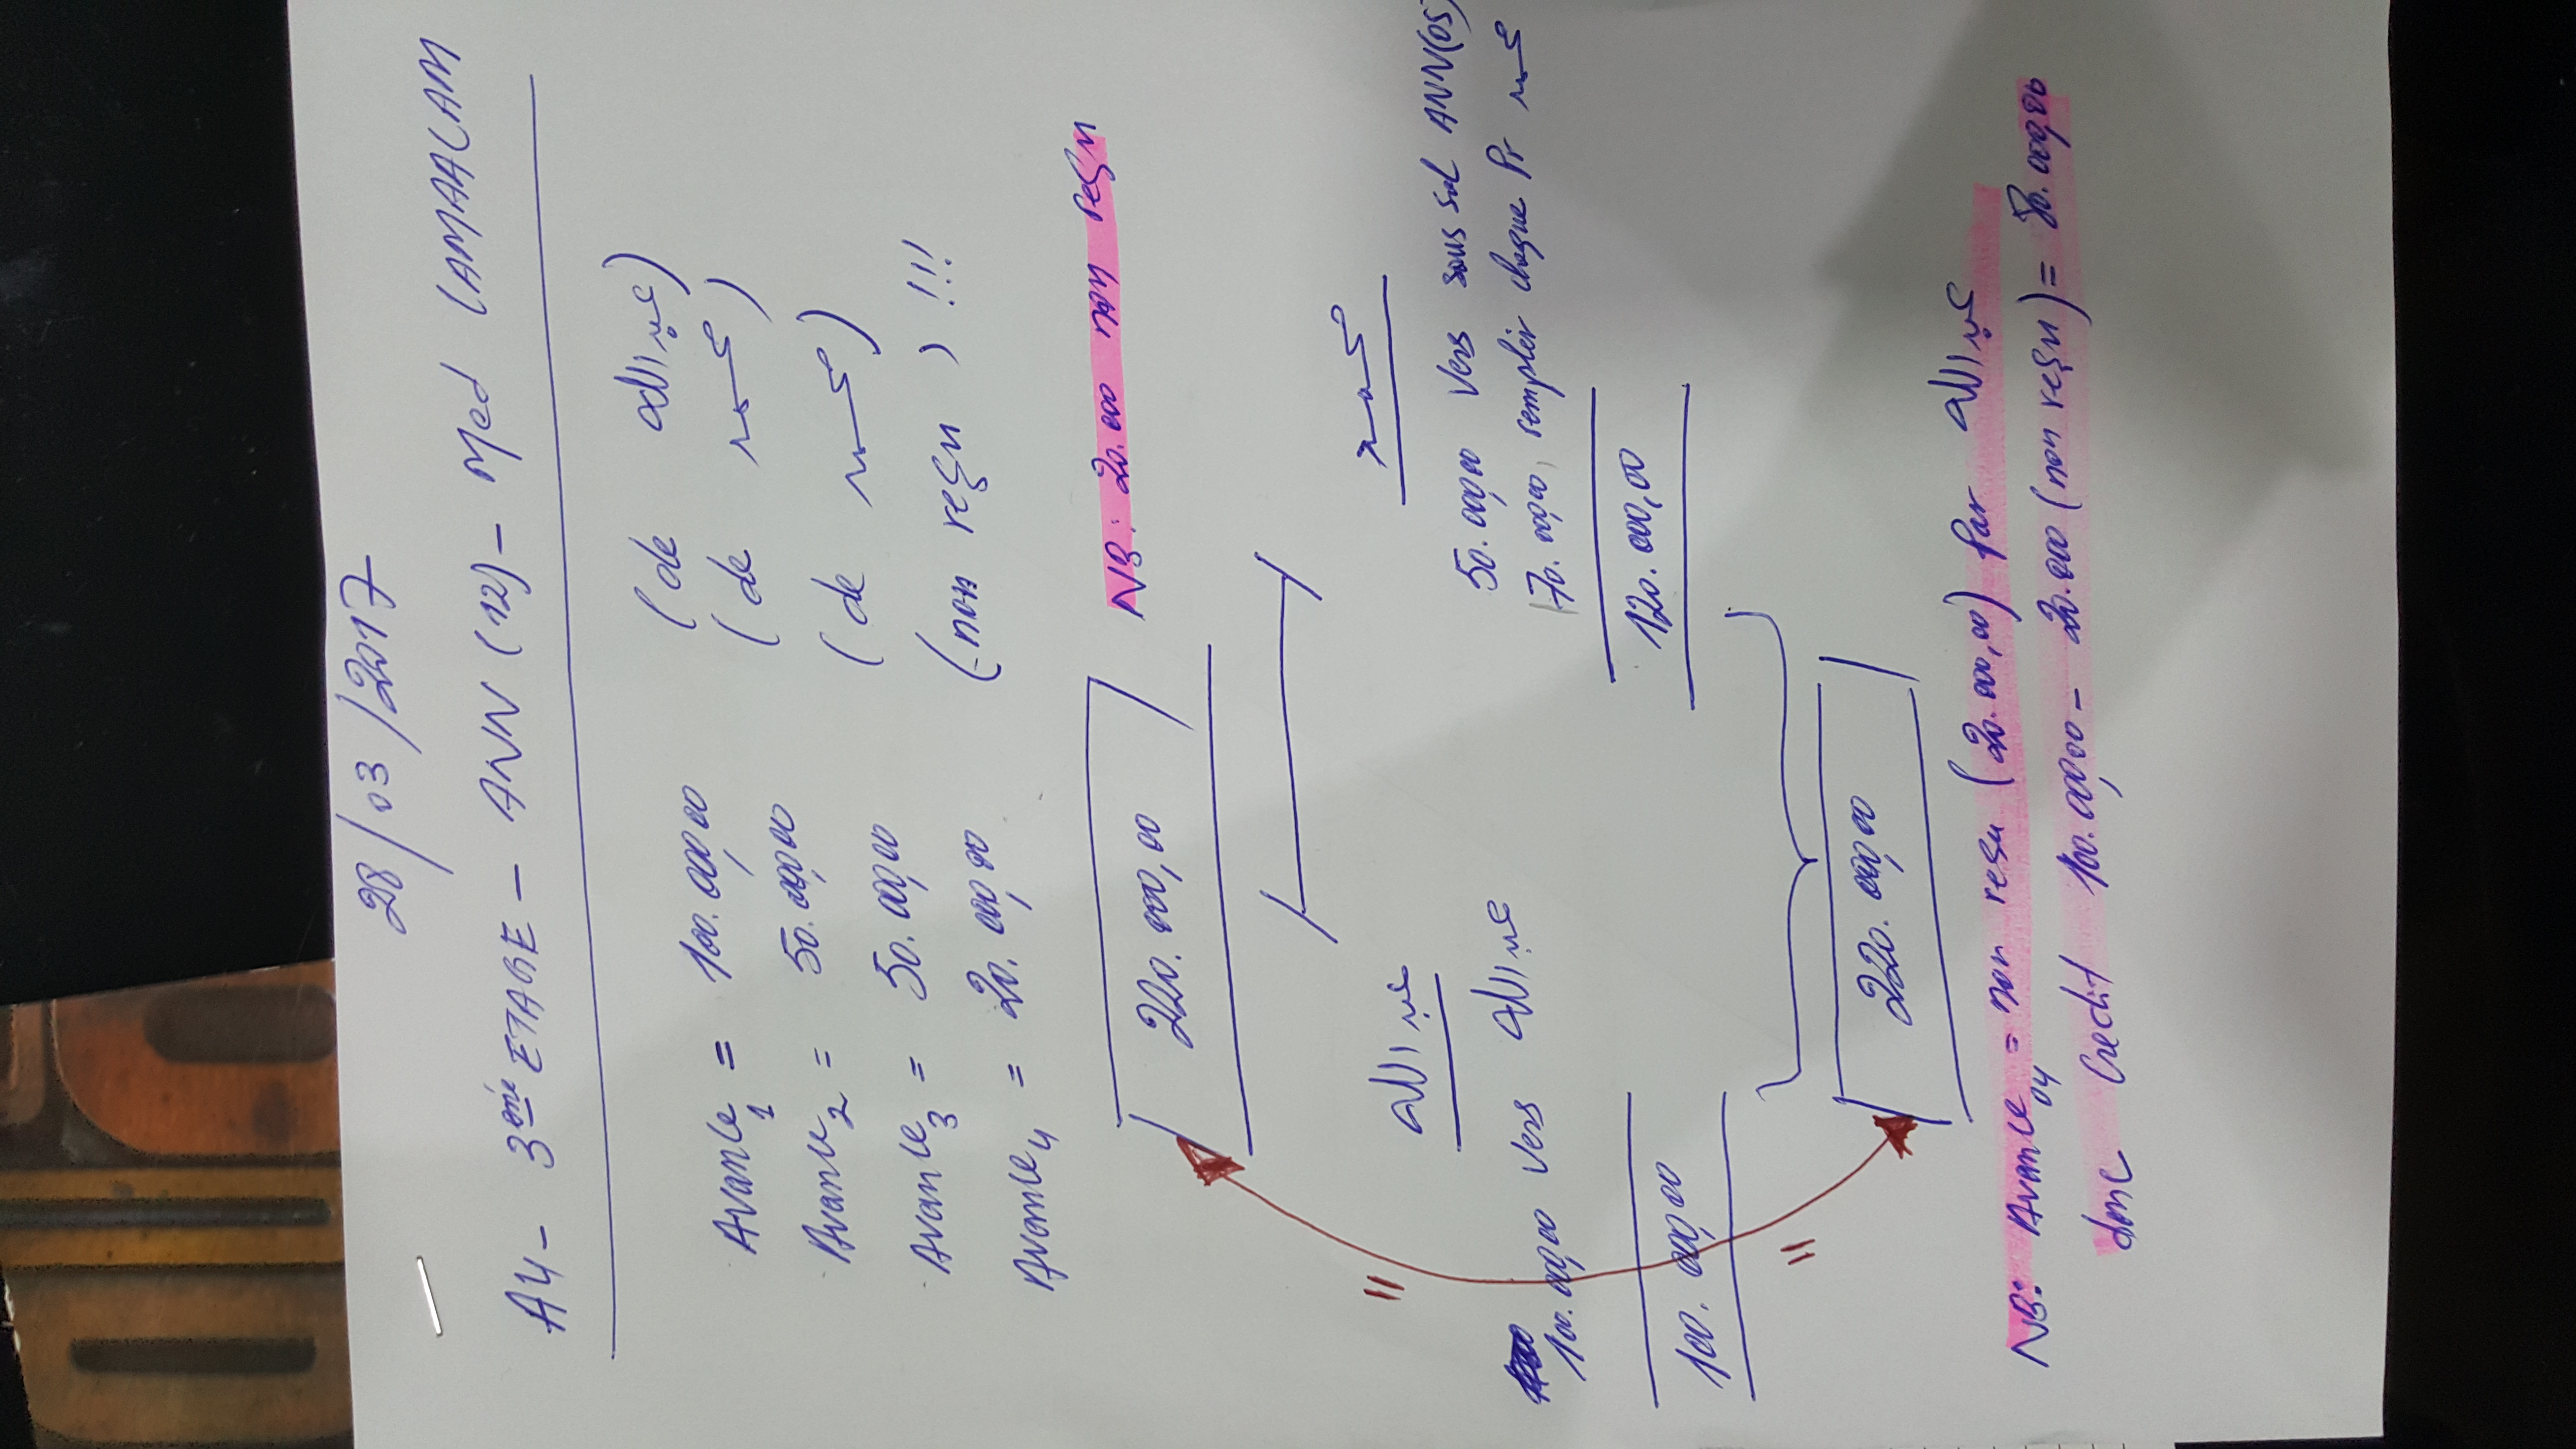 28/03/2017
A4- 3ème ETAGE - ANN (12) - Med LAMAALAM
Avance1 = 100.000,00 (de عبد الله)
Avance2 = 50.000,00 (de محمد)
Avance3 = 50.000,00 (de محمد)
Avance4 = 20.000,00 (non reçu) !!!
220.000,00
NB: 20.000 non reçu
عبد الله
100.000,00 Vers عبد الله
100.000,00
محمد
50.000,00 Vers sous sol ANN(05)
70.000,00, remplir cheque Pr محمد
120.000,00
220.000,00
NB: Avance04 = non resu (20.000,00) Par عبد الله
donc Credit 100.000,00 - 20.000 (non reçu) = 80.000,00